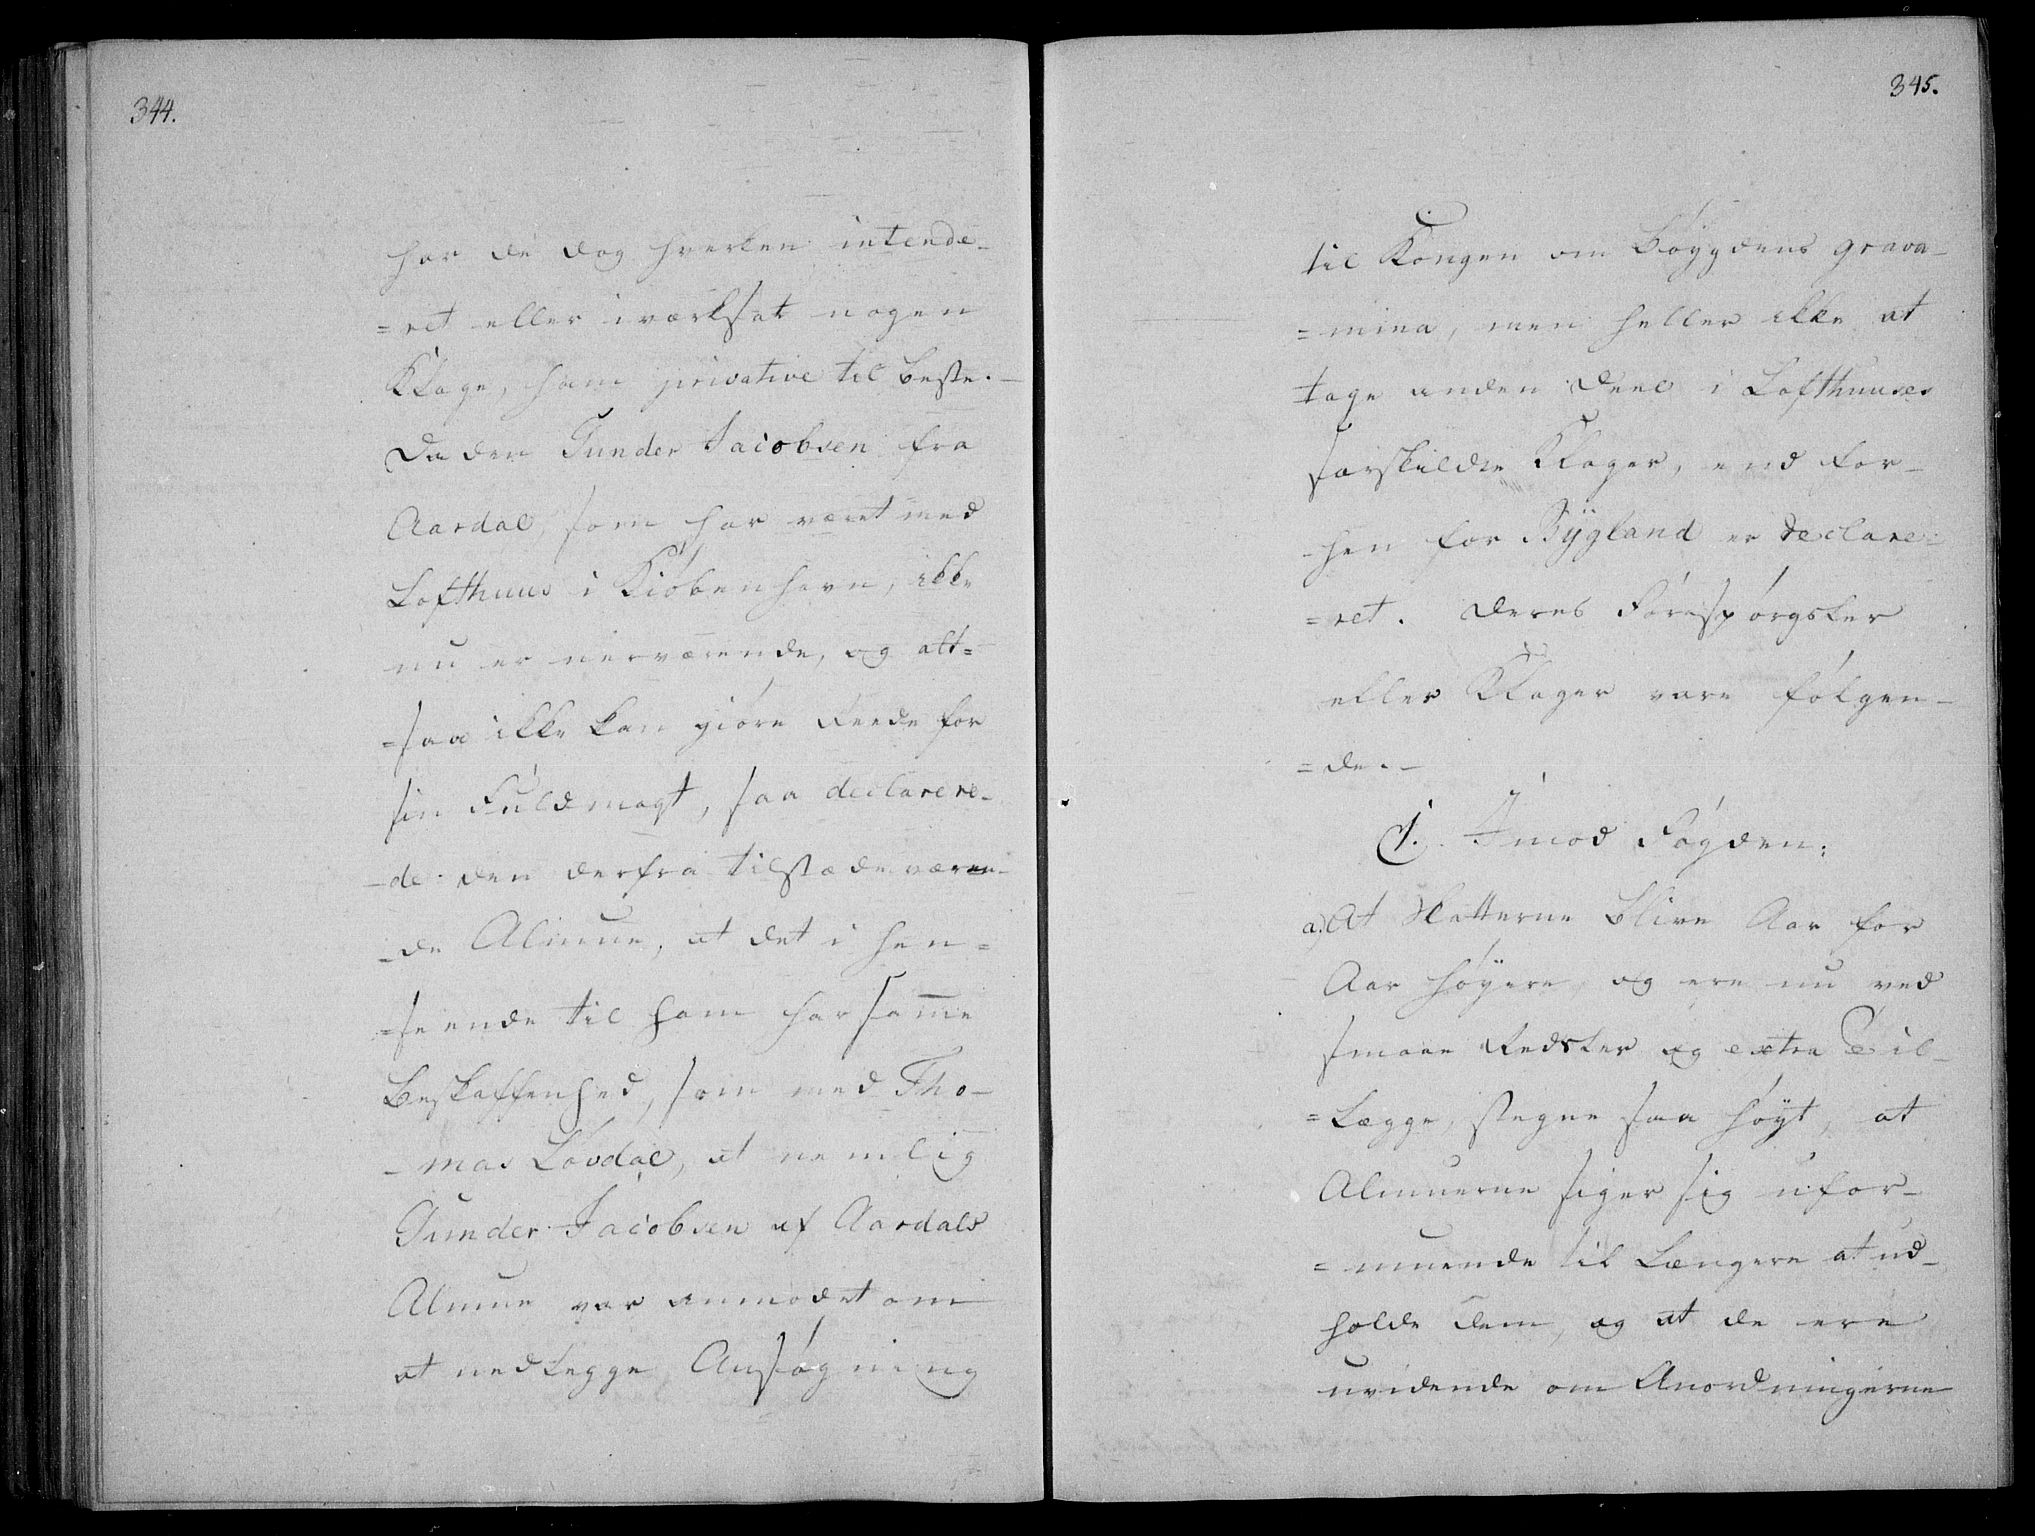 344.
har de dog hverken intende-
=ret eller iværksat nogen
Klage, ham privative til beste.-
Da den Gunder Jacobsen fra
Aardal, som har været med
Lofthuus i Kiøbenhavn, ikke
nu er nærværende, og alt=
=saa ikke kan giøre Reede for
sin Fuldmagt, saa declarere-
-de den derfra tilstædeværen-
-de Almue, at det i hen=
=seende til ham har samme
Beskaffenhed, som med Tho-
-mas Løvdal, at nemlig
Gunder Jacobsen af Aardals
Almue var anmodet om
at nedlegge Ansøgning
345.
til Kongen om Bøygdens grava-
=mina, men heller ikke at
tage anden Deel i Lofthuuses
særskildte Klager, end for-
-hen for Bygland er declare-
=ret. Deres Forespørgsler
eller Klager vare følgen-
=de.-
1. Imod Fogden:
a) At Skatterne blive Aar for
Aar høyere, og ere nu ved
smaae Redsler og extra Til-
=lægge, stegne saa høyt, at
Almuerne siger sig ufor-
=muende til længere at ud-
holde dem, og at de ere
uvidende om Anordningerne